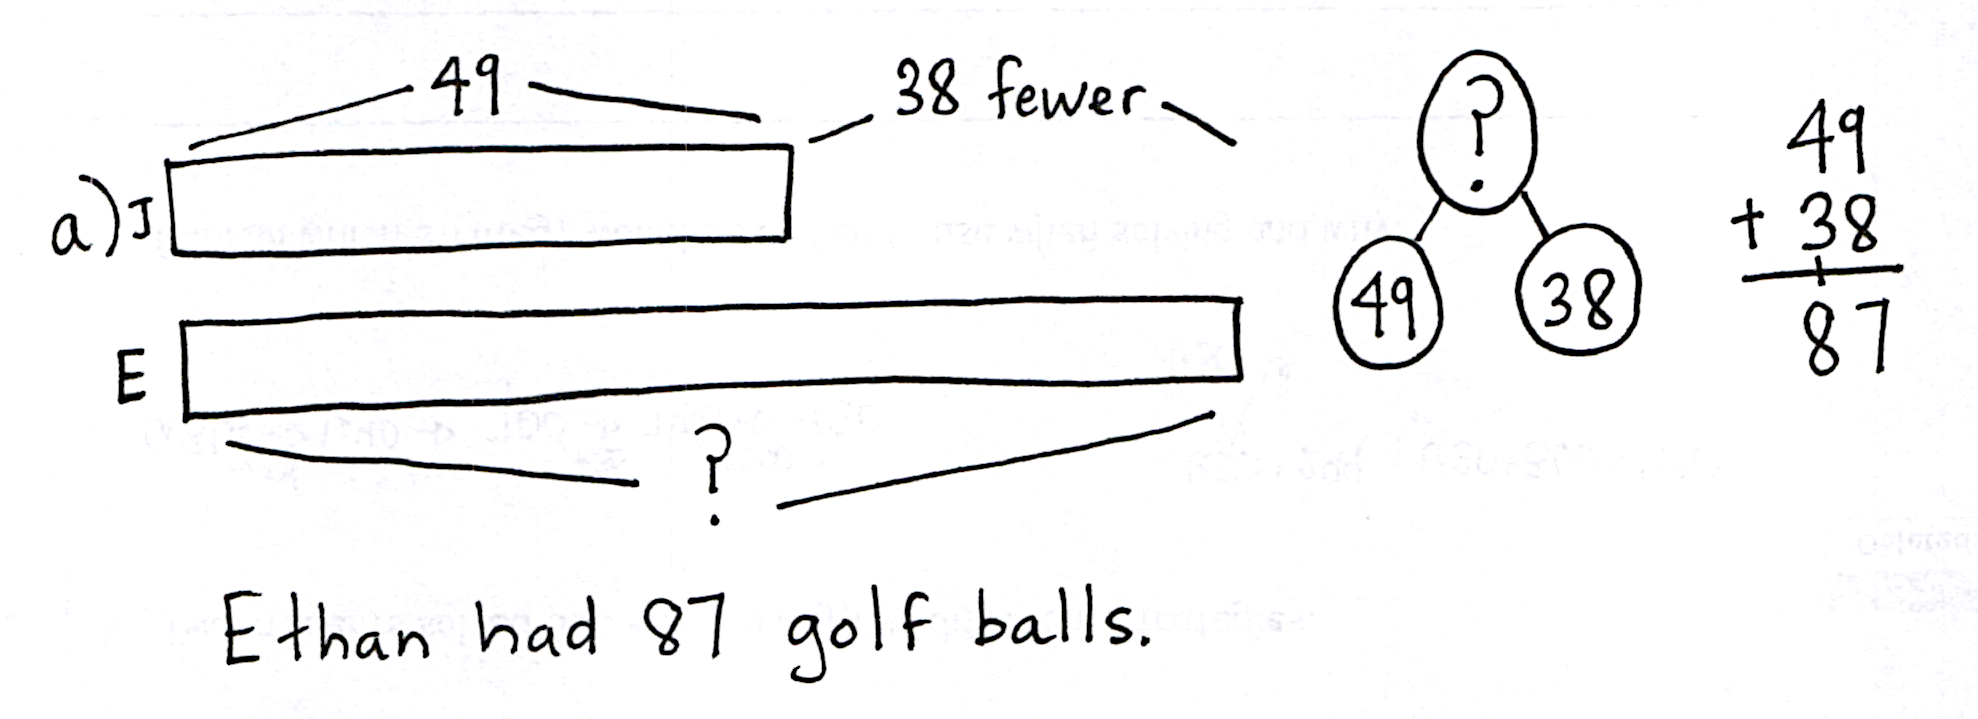 49 38 fewer
a) J
E
?
?
49 38
49
+ 38
1
87
Ethan had 87 golf balls.